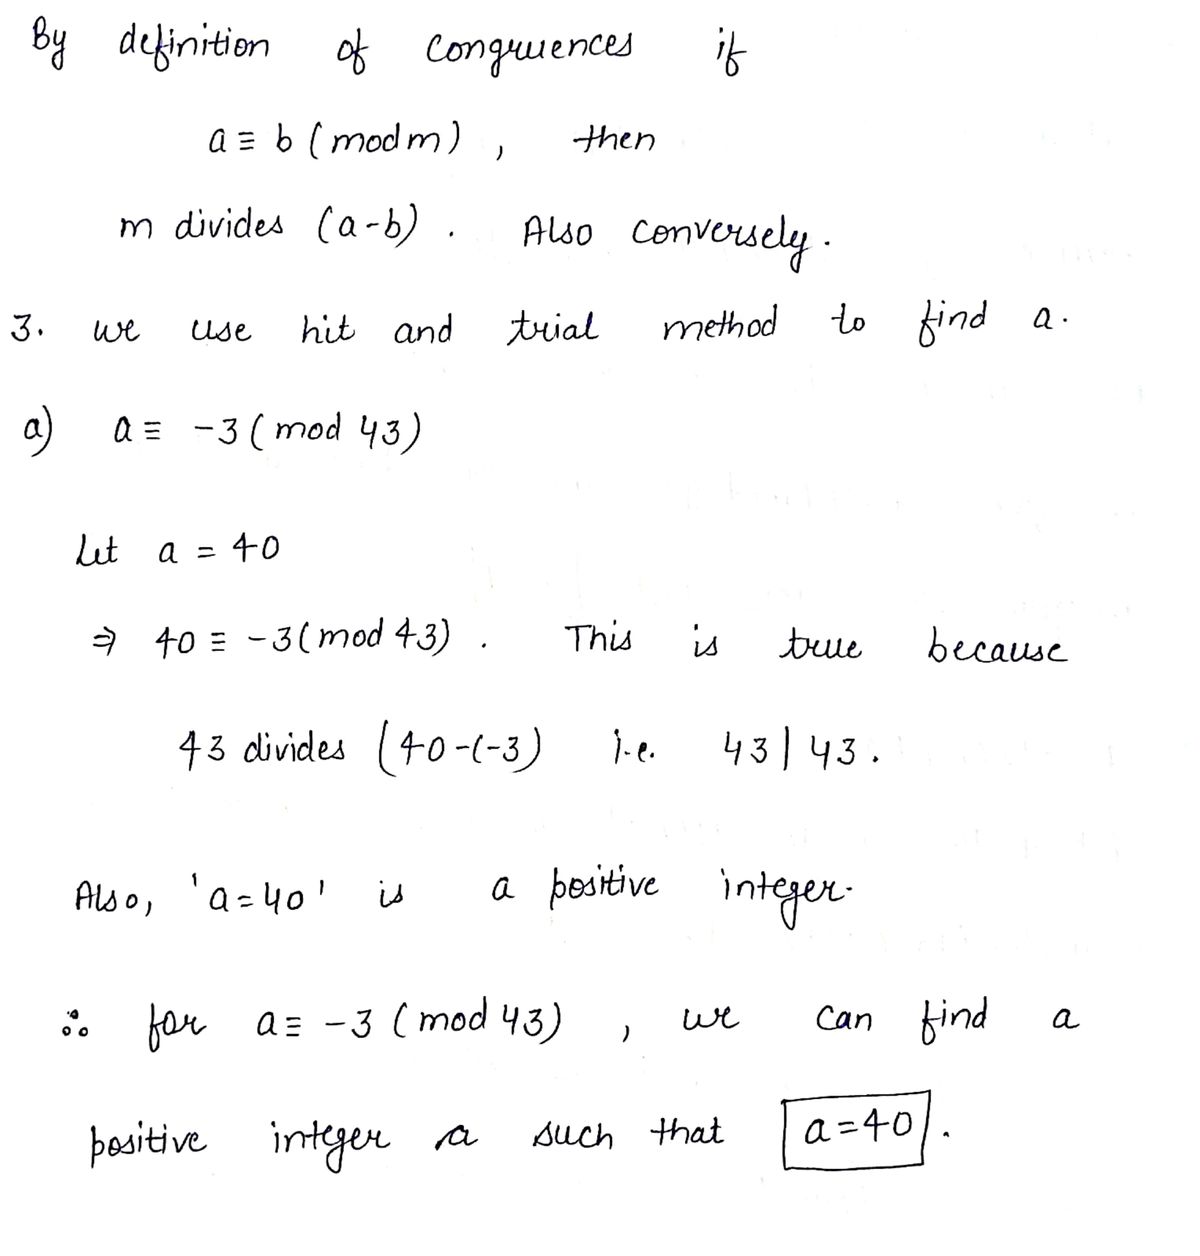 By definition of congruences if
a ≡ b (mod m) , then
m divides (a-b) . Also conversely.
3. we use hit and trial method to find a.
a) a ≡ -3 ( mod 43)
Let a = 40
⇒ 40 ≡ -3 (mod 43) . This is true because
43 divides (40-(-3) i.e. 43 | 43 .
Also, 'a=40' is a positive integer.
∴ for a ≡ -3 ( mod 43) , we can find a
positive integer a such that a=40 .